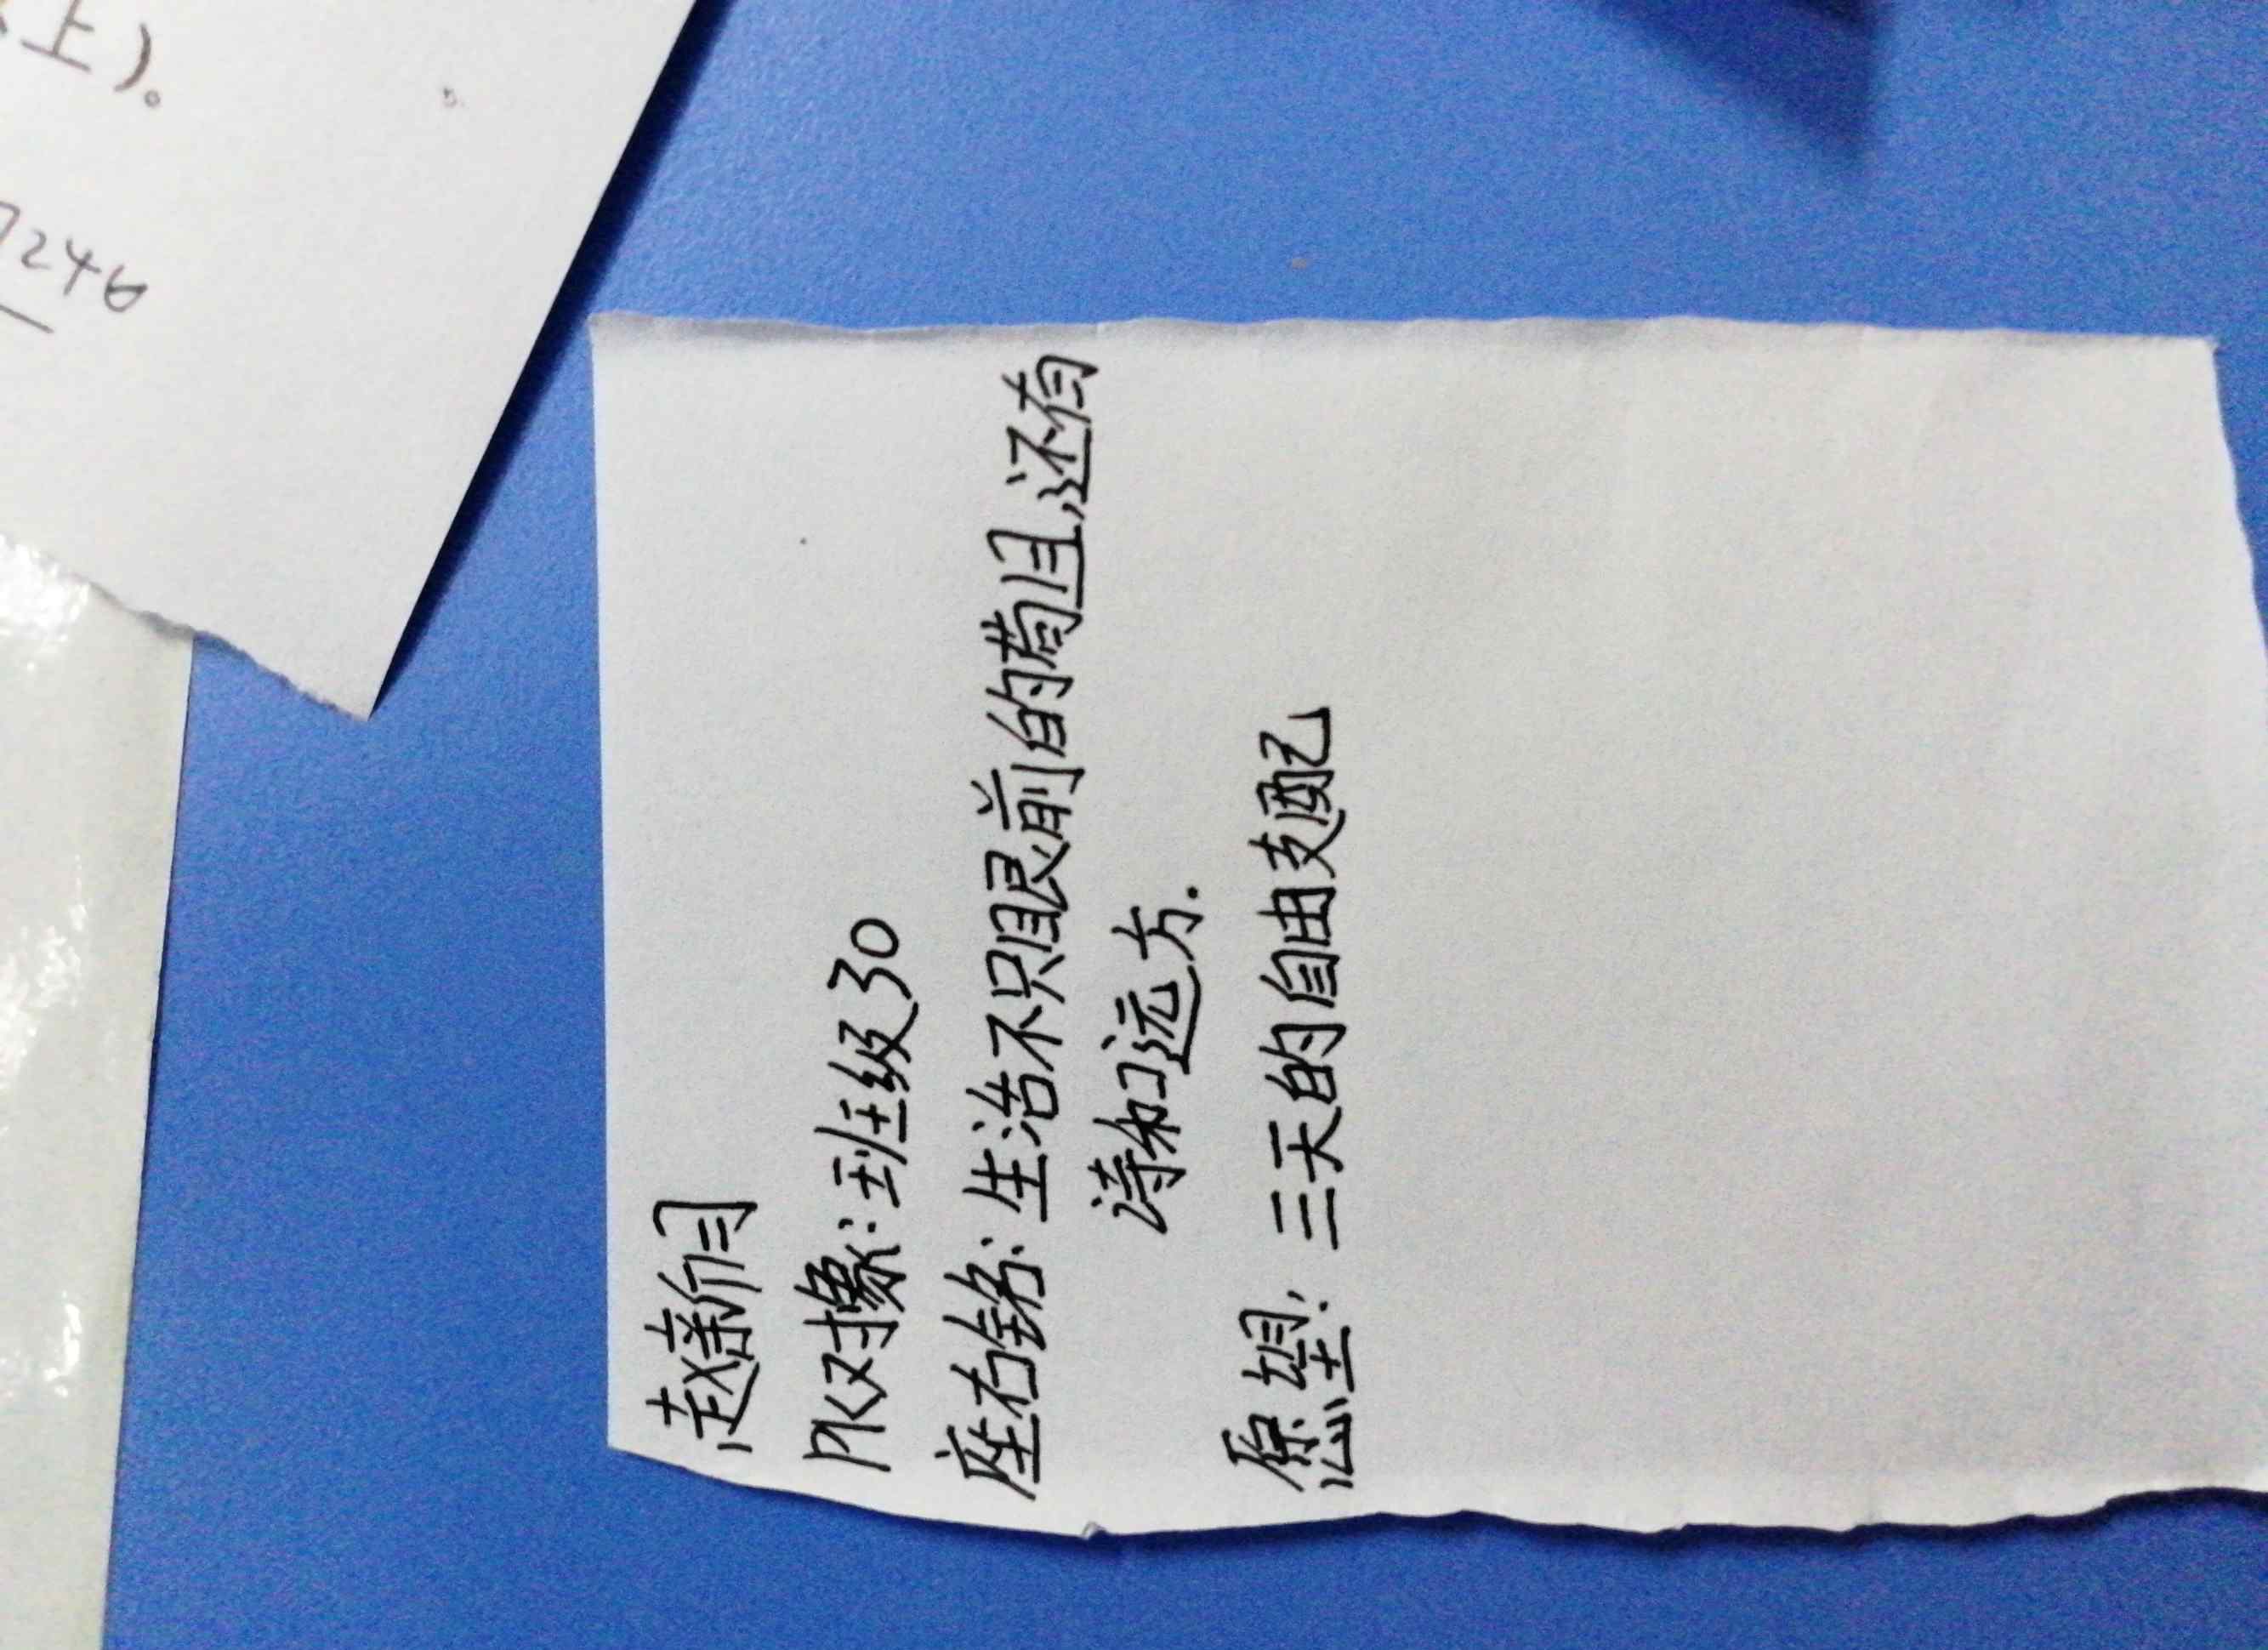 上)。
7246
赵新月
PK对象:班级30
座右铭:生活不只眼前的苟且,还有
诗和远方.
愿望:三天的自由支配